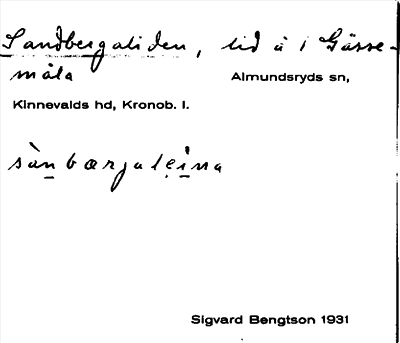 Sandbergaliden, lid å 1 Gässe-
måla Almundsryds sn,
Kinnevalds hd, Kronob. l.
sànbærjaleina
Sigvard Bengtson 1931